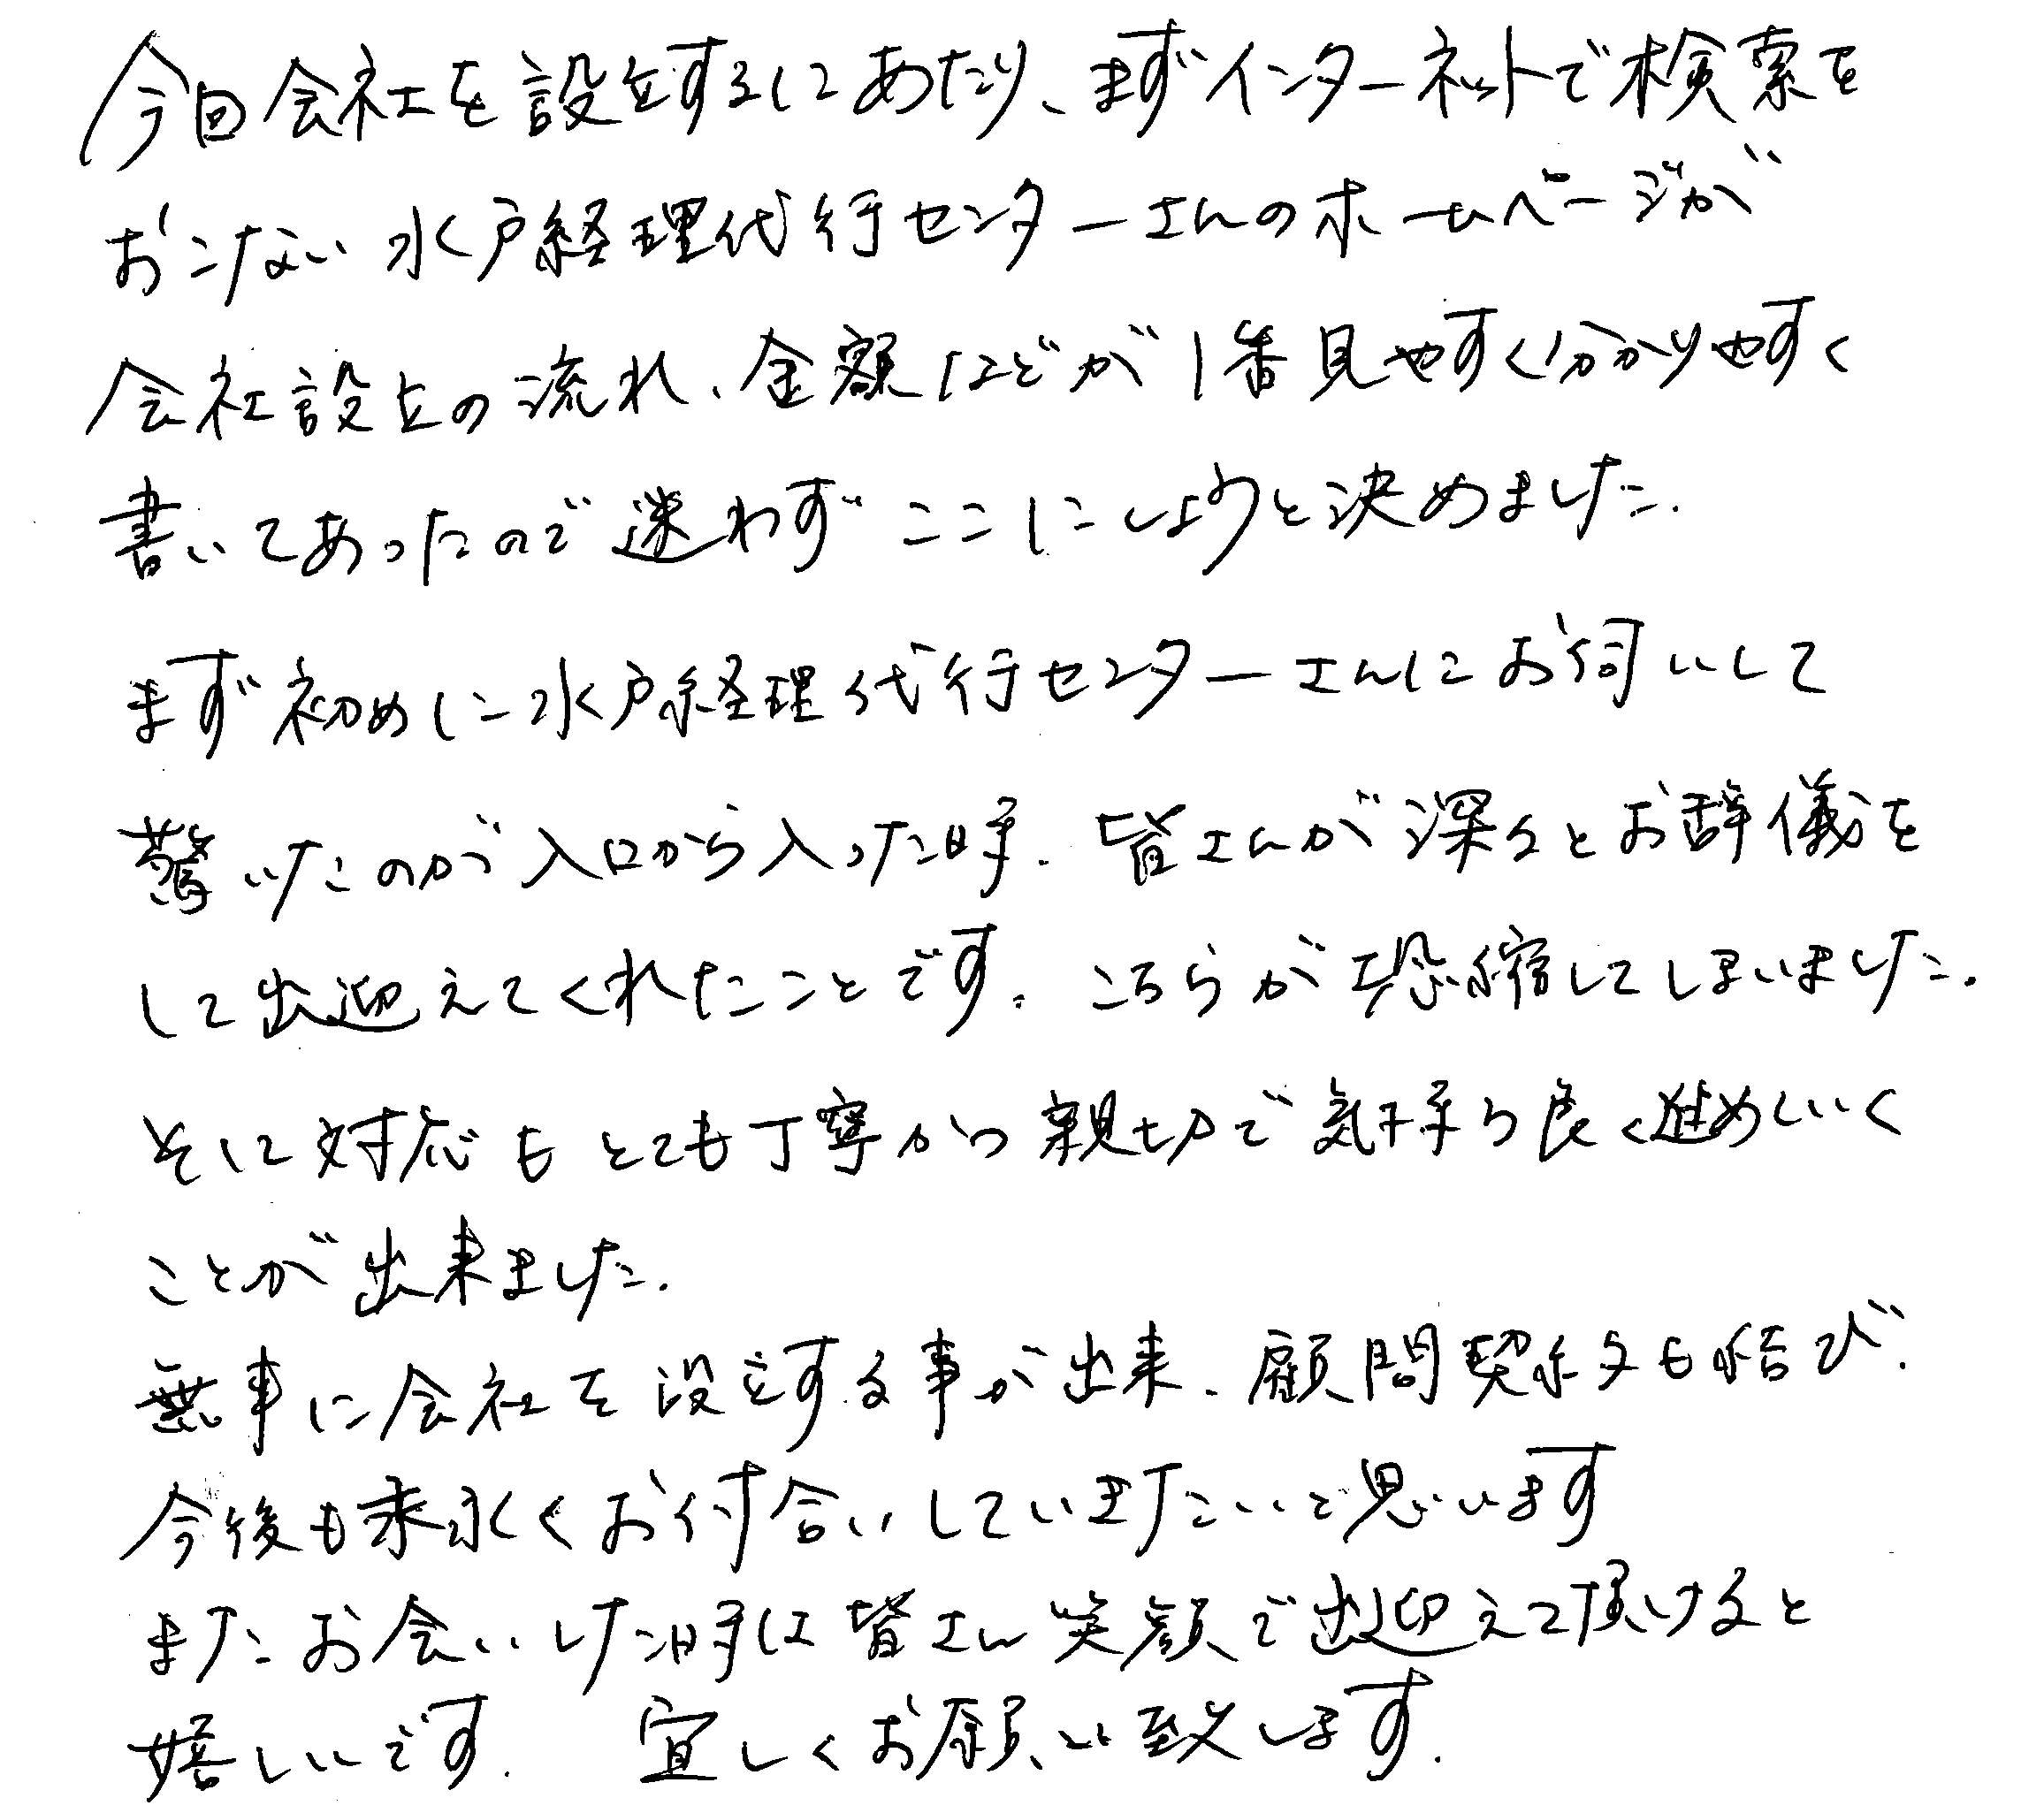 今回会社を設立するにあたり、まずインターネットで検索を
おこない水戸経理代行センターさんのホームページが
会社設立の流れ、金額などが1番見やすく分かりやすく
書いてあったので迷わずここにしようと決めました.
まず初めに水戸経理代行センターさんにお伺いして
驚いたのが入口から入った時.皆さんが深々とお辞儀を
して出迎えてくれたことです.こちらが恐縮してしまいました.
そして対応もとても丁寧かつ親切で気持ち良く進めいく
ことが出来ました.
無事に会社を設立する事が出来、顧問契約も結び.
今後も末永くお付合いしていきたいと思います
またお会いした時は皆さん笑顔で出迎えて頂けると
嬉しいです. 宜しくお願い致します.